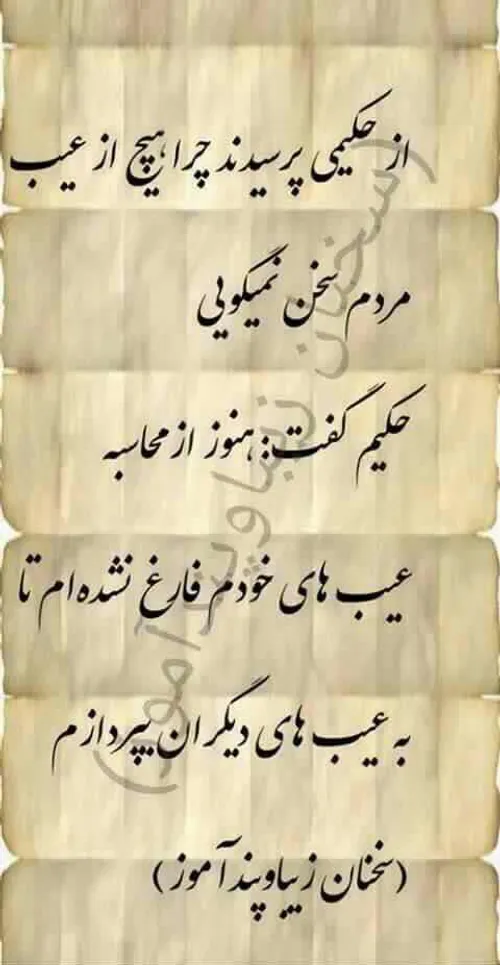 از حکیمی پرسیدند چرا هیچ از عیب
مردم سخن نمیگویی
حکیم گفت: هنوز از محاسبه
عیب های خودم فارغ نشده ام تا
به عیب های دیگران بپردازم
(سخنان زیبا و پند آموز)
(سخنان زیبا و پند آموز)